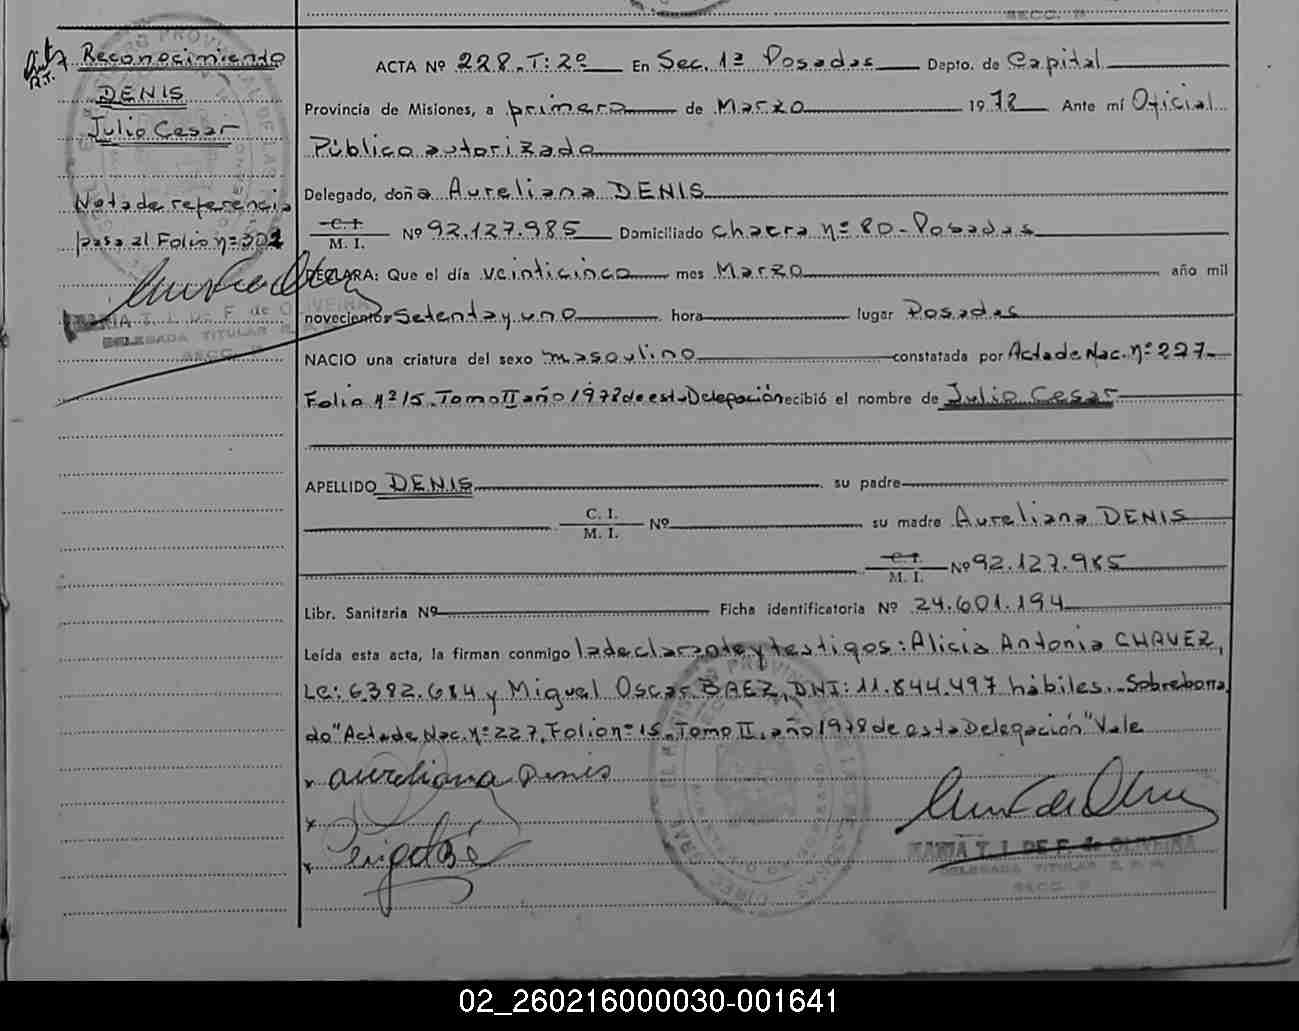 SECC. B
Reconocimiento
DENIS
Julio Cesar
Nota de referencia
pasa al Folio nº 302
MARIA T. I. DE F. de OLIVEIRA
DELEGADA TITULAR
SECC. B
ACTA Nº 228. T: 2º En Sec. 1ª Posadas Depto. de Capital
Provincia de Misiones, a primero de Marzo 1978 Ante mí Oficial
Público autorizado
Delegado, doña Aureliana DENIS
C. I.
M. I. Nº 92.127.985 Domiciliado chacra nº 80 - Posadas
DECLARA: Que el día veinticinco mes Marzo año mil
novecientos setenta y uno hora lugar Posadas
NACIO una criatura del sexo masculino constatada por Acta de Nac. nº 227
Folio nº 15. Tomo II año 1978 de esta Delegación recibió el nombre de Julio Cesar
APELLIDO DENIS su padre
C. I.
M. I. Nº su madre Aureliana DENIS
C. I.
M. I. Nº 92.127.985
Libr. Sanitaria Nº Ficha identificatoria Nº 24.601.194
Leída esta acta, la firman conmigo la declarante y testigos: Alicia Antonia CHAVEZ,
LC: 6.392.684 y Miguel Oscar BAEZ, DNI: 11.844.497 hábiles. Sobreborra
do "Acta de Nac. nº 227, Folio nº 15. Tomo II. año 1978 de esta Delegación" Vale
x Aureliana Denis
x
x
MARIA T. I. DE F. de OLIVEIRA
DELEGADA TITULAR
SECC. B
02_260216000030-001641